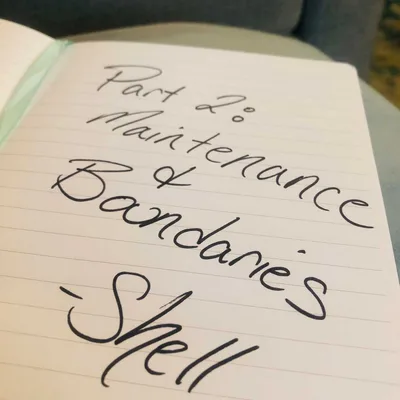 Part 2:
Maintenance
&
Boundaries
-Shell